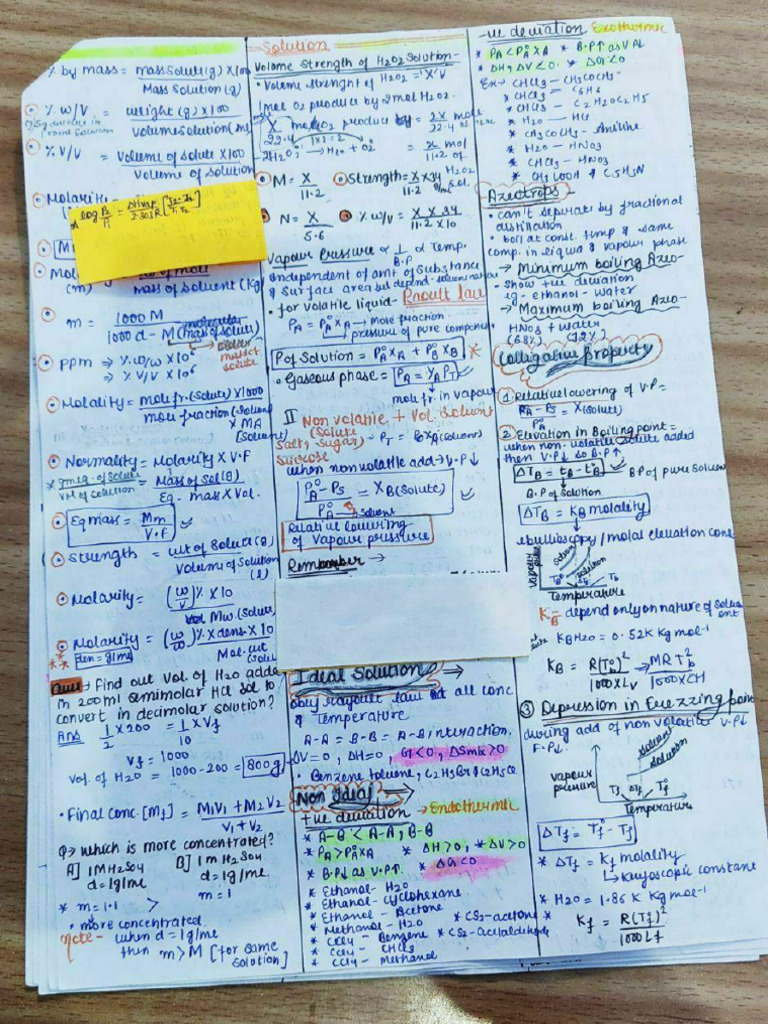 Solution
% by mass = mass Solute(g) X100
Mass Solution(g)
% w/V = weight (g) X100
volume solution(m
% V/V = Volume of solute X100
Volume of solution
Molari
log P2/P1 = ΔHvap/2.303R [T2-T1/T1T2]
Mol
(m)
Mass of Solvent (Kg)
m = 1000 M
1000 d - M (molecular
mass of solute)
PPm ⇒ % w/w X 10⁶
⇒ % V/V X 10⁶
Molality = mole fr. (Solute) X1000
mole fraction (Solven
X MA
(Solvent)
Normality = Molarity X V.F
gmeq. of Solute
Vol of Solution
= Mass of Sol (g)
Eq - mass X Vol.
Eq mass = Mm
V.F
Strength = wt of Solute (g)
Volume of Solution
(l)
Molarity = (w/v) % X 10
Mw. (Solute
Molarity = (w/w) % X dens. X 10
den = g/ml
Mol. wt
(Solu
Ques:- Find out vol. of H2O adde
in 200ml semimolar HCl sol to
convert in decimolar solution?
Ans
1/2 X 200 = 1/10 X Vf
Vf = 1000
Vol. of H2O = 1000 - 200 = 800
• Final Conc. [Mf] = M1V1 + M2V2
V1 + V2
Q→ which is more concentrated?
A] 1M H2SO4 B] 1m H2SO4
d=1g/ml d=1g/ml
* m=1.1 > m=1
• more concentrated
Note - when d=1g/ml
then m>M [for same
solution]
Volume Strength of H2O2 Solution-
• Volume strength of H2O2 = 'X' V
1mol O2 produce by 2mol H2O2.
X/22.4 mole O2 produce by = 2X/22.4 mole
2H2O2 → H2O + O2
= X/11.2 mol
of H2O2
sol.
M = X/11.2
Strength = X x 34/11.2
N = X/5.6
% w/v = X x 34/11.2 x 10
Vapour Pressure ∝ 1/B.P ∝ Temp.
Independent of amt of Substance
& Surface area but depend - solvent nature
• for volatile liquid - Raoult law
PA = P°A XA → mole fraction
pressure of pure compone
P of Solution = P°A XA + P°B XB *
• Gaseous phase = PA = YA PT
mole fr. in vapour
II Non volatile + Vol. Solvent
(Solute
Salt, Sugar)
Sucrose
PT = P°A XA (Solvent)
when non volatile add → V.P↓
P°A - PS
P°A → Solvent
= XB (Solute)
Relative lowering
of vapour pressure
Remember →
Ideal Solution →
obey rayoult law at all conc
& Temperature
A-A = B-B = A-B interaction.
ΔV=0, ΔH=0, G<0, ΔSmix>0
• Benzene toluene, C2H5Br & C2H5Cl
Non Ideal →
+ve deviation → Endothermic
* A-B < A-A, B-B
* PA > P°A XA * ΔH>0, * ΔV>0
* B.P↓ as V.P↑. * ΔG<0
* Ethanol - H2O
* Ethanol - Cyclohexane
* Ethanol - Acetone
* Methanol - H2O
* CS2 - acetone
* CCl4 - Benzene
* CS2 - Acetaldehyde
* CCl4 - CHCl3
* CCl4 - Methanol
-ve deviation Exothermic
* PA < P°A XA * B.P↑ as V.P↓
* ΔH & ΔV<0. * ΔG<0
Ex→ CHCl3 - CH3COCH3
* CHCl3 - C6H6
* CHCl3 - C2H5OC2H5
* H2O - HCl
* CH3COCH3 - Aniline
* H2O - HNO3
* CHCl3 - HNO3
* CH3COOH & C5H5N
Azeotrops
• can't seprate by fractional
distillation
• boil at const. temp & same
comp. in liquid & vapour phase
→ Minimum boiling Azeo-
- Show +ve deviation
eg - ethanol - water
→ Maximum boiling Azeo-
HNO3 + water
(68%) (32%)
Colligative Property
1. Relative lowering of V.P =
P°A - PS
P°A
= X (Solute)
2. Elevation in Boiling point =
when non-volatile solute added
then V.P↓ so B.P↑
ΔTB = tB - t°B
BP of pure Solven
B.P of Solution
ΔTB = KB molality
ebullioscopy / molal elevation cons
Vapour
Solvent
Solution
T°B Tb
Temperature
KB - depend only on nature of Solvent
KB H2O = 0.52 K Kg mol⁻¹
KB = R(T°b)²/1000 x Lv → MRT²b/1000 x ΔH
3. Depression in Freezzing point
during add of non volatile V.P↓
F.P↓.
vapour
pressure
Solvent
Solution
Tf ΔTf T°f
Temperature
ΔTf = T°f - Tf
* ΔTf = Kf molality
→ Kryoscopic constant
* H2O = 1.86 K Kg mol⁻¹
Kf = R(T°f)²
1000 Lf